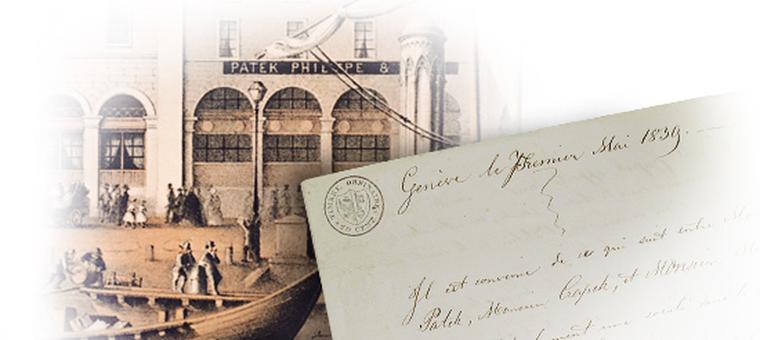 PATEK PHILIPPE &
Genève le Premier Mai 1839.
TIMBRE ORDINAIRE
Il est convenu de ce qui suit entre
Patek, Monsieur Czapek, et Monsieur